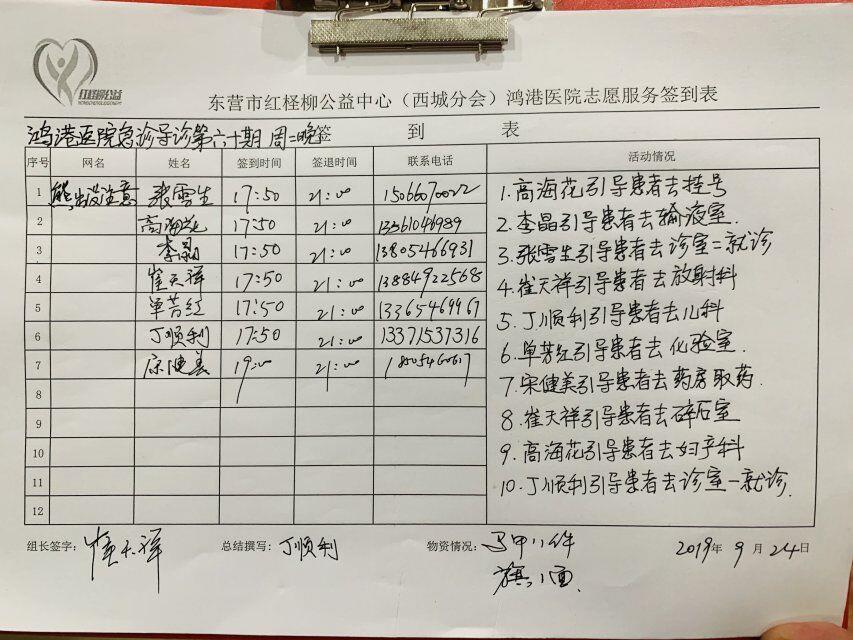 红柽柳公益
东营市红柽柳公益中心（西城分会）鸿港医院志愿服务签到表
鸿港医院急诊导诊第六十期 周二晚 签到表
序号 网名 姓名 签到时间 签退时间 联系电话 活动情况
1 熊出没注意 张雪生 17:50 21:00 15066070022
2 高海花 17:50 21:00 13361046989
3 李晶 17:50 21:00 13805466931
4 崔天祥 17:50 21:00 13884922568
5 单芳红 17:50 21:00 13365469967
6 丁顺利 17:50 21:00 13371537316
7 宋健美 19:00 21:00 1805460617
8
9
10
11
12
1.高海花引导患者去挂号
2.李晶引导患者去输液室.
3.张雪生引导患者去诊室二就诊
4.崔天祥引导患者去放射科
5.丁顺利引导患者去儿科
6.单芳红引导患者去化验室.
7.宋健美引导患者去药房取药.
8.崔天祥引导患者去碎石室
9.高海花引导患者去妇产科
10.丁顺利引导患者去诊室一就诊.
组长签字：崔天祥 总结撰写：丁顺利 物资情况：马甲11件 2019年9月24日
旗:1面.